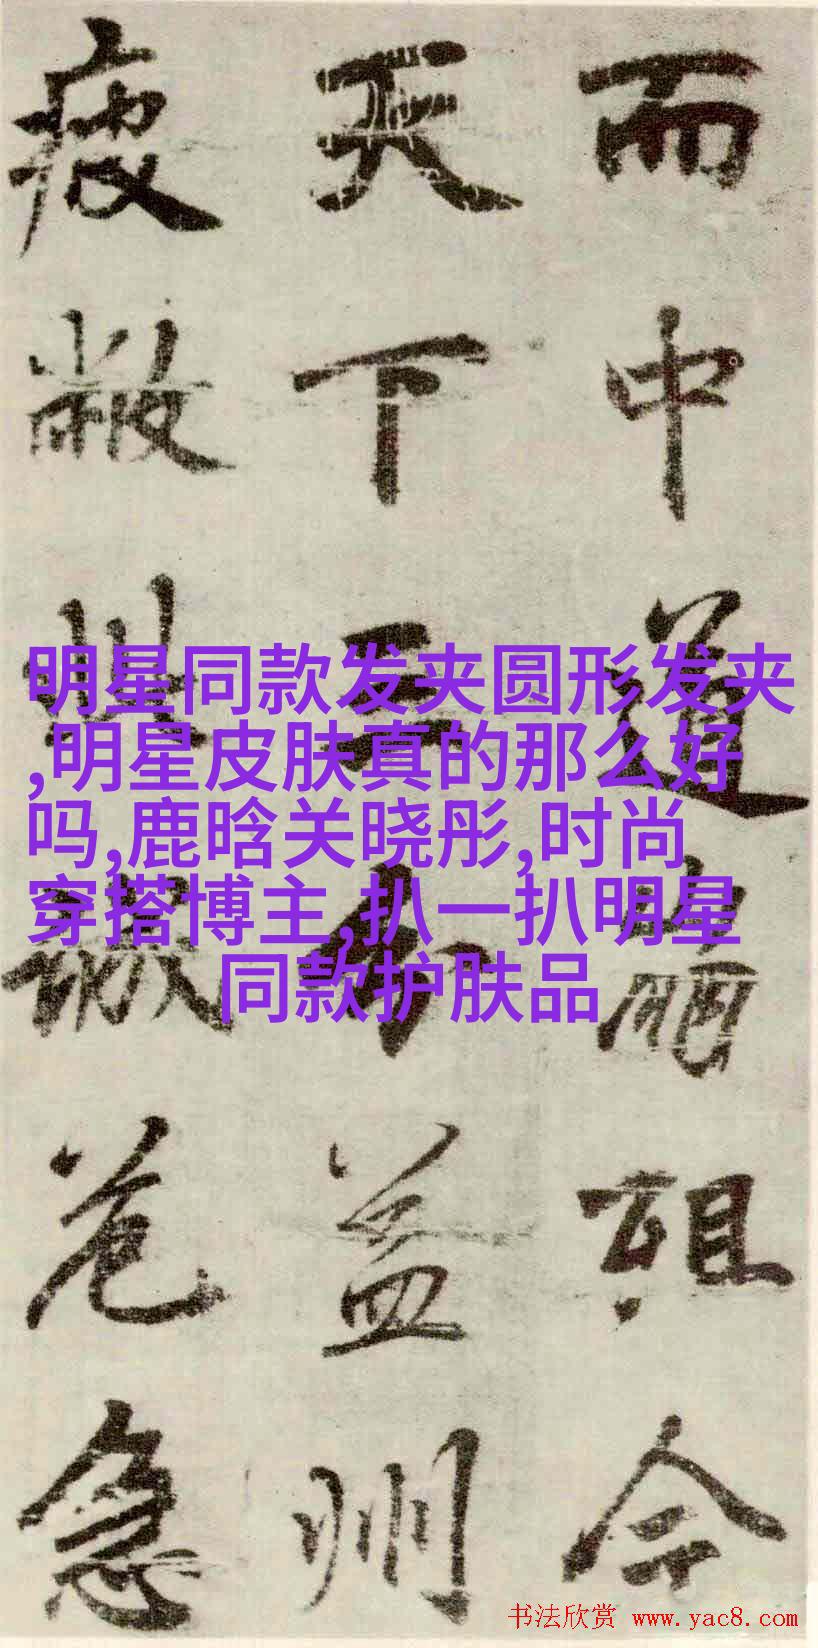 而中道崩殂今
天下三分益州
疲敝此誠危急
明星同款发夹圆形发夹
,明星皮肤真的那么好
吗,鹿晗关晓彤,时尚
穿搭博主,扒一扒明星
同款护肤品
书法欣赏 www.yac8.com